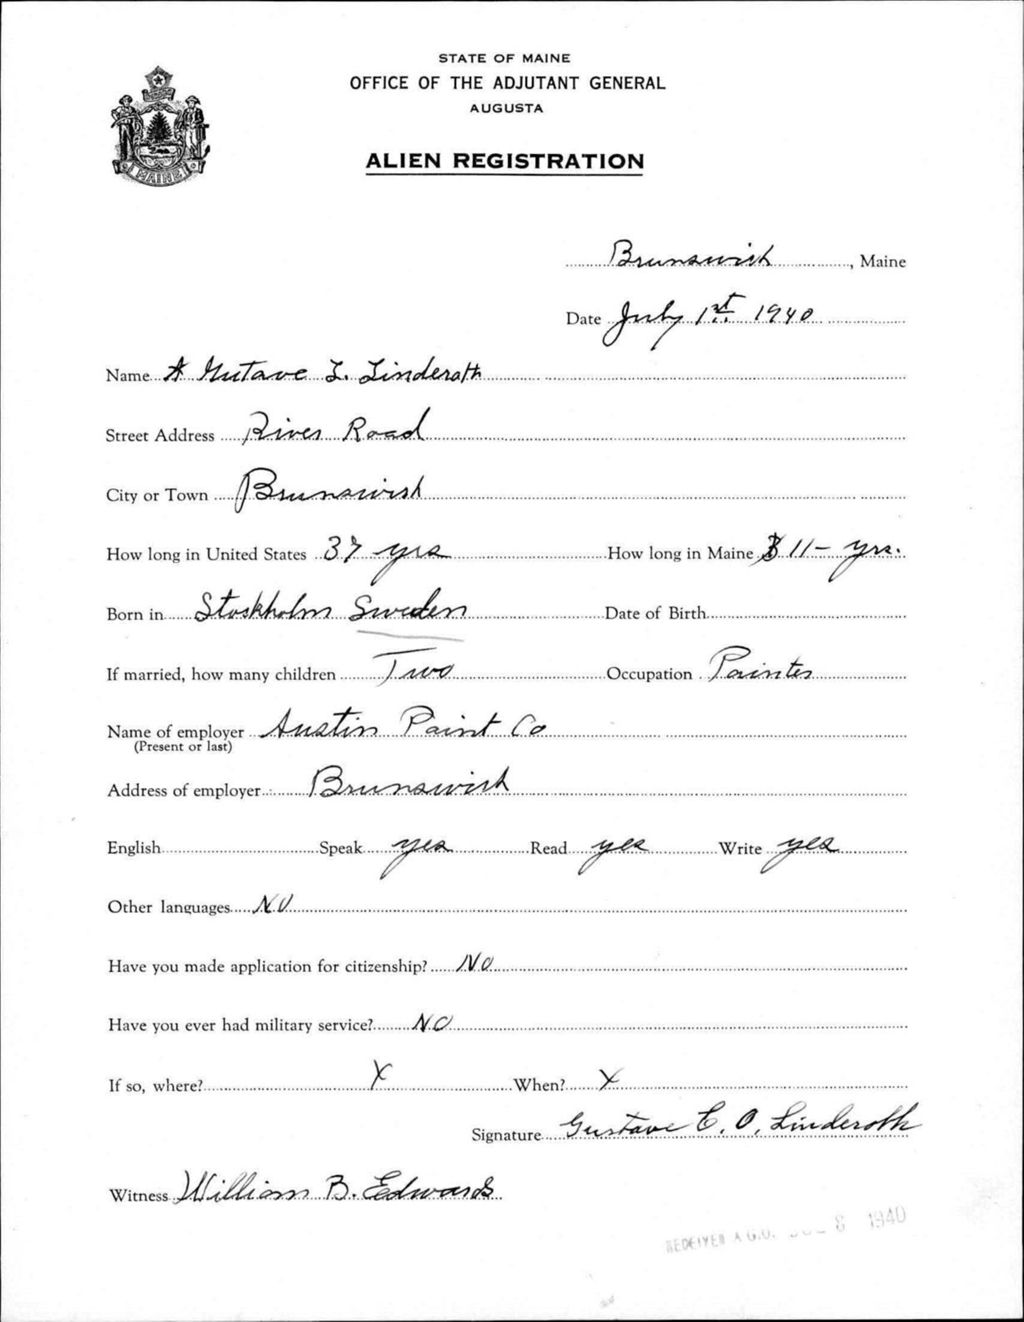 STATE OF MAINE
OFFICE OF THE ADJUTANT GENERAL
AUGUSTA
ALIEN REGISTRATION
MAINE
Brunswick, Maine
Date July 1st 1940
Name A Gustave L. Linderoth
Street Address River Road
City or Town Brunswick
How long in United States 37 yrs How long in Maine 11 - yrs.
Born in Stockholm Sweden Date of Birth
If married, how many children Two Occupation Painter
Name of employer Austin Paint Co
(Present or last)
Address of employer Brunswick
English Speak yes Read yes Write yes
Other languages No
Have you made application for citizenship? No
Have you ever had military service? No
If so, where? X When? X
Signature Gustave E. O. Linderoth
Witness William B. Edwards
RECEIVED A.G.O. 8 1940